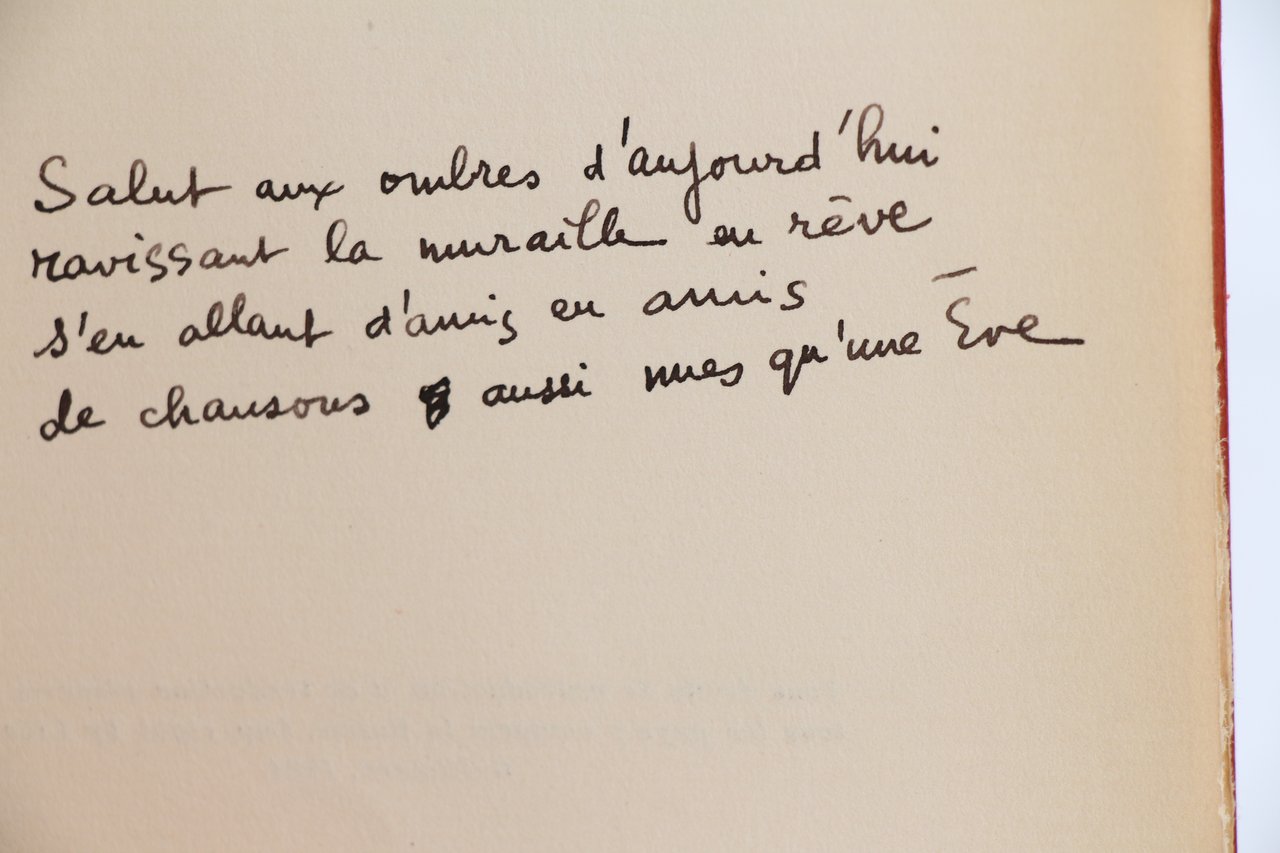 Salut aux ombres d'aujourd'hui
ravissant la muraille en rêve
s'en allant d'amis en amis
de chansons aussi nues qu'une Ève